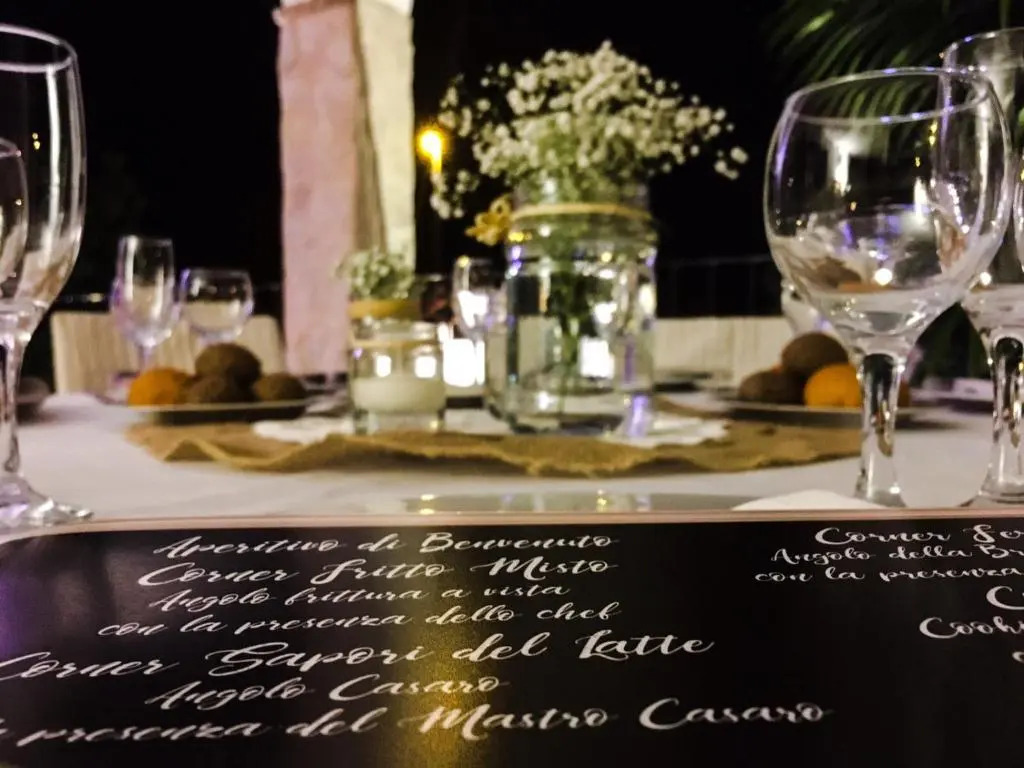 Aperitivo di Benvenuto
Corner Fritto Misto
Angolo frittura a vista
con la presenza dello chef
Corner Sapori del Latte
Angolo Casaro
presenza del Mastro Casaro
Corner
Angolo della
con la presenza